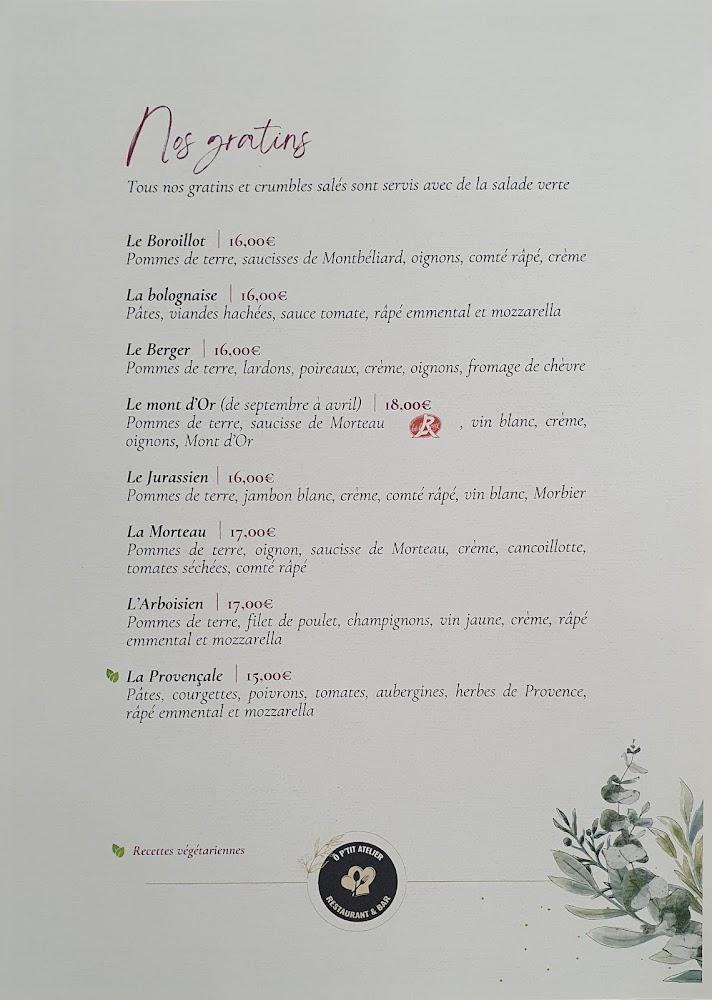 Nos gratins
Tous nos gratins et crumbles salés sont servis avec de la salade verte
Le Boroillot | 16,00€
Pommes de terre, saucisses de Montbéliard, oignons, comté râpé, crème
La bolognaise | 16,00€
Pâtes, viandes hachées, sauce tomate, râpé emmental et mozzarella
Le Berger | 16,00€
Pommes de terre, lardons, poireaux, crème, oignons, fromage de chèvre
Le mont d'Or (de septembre à avril) | 18,00€
Pommes de terre, saucisse de Morteau , vin blanc, crème,
oignons, Mont d'Or
Le Jurassien | 16,00€
Pommes de terre, jambon blanc, crème, comté râpé, vin blanc, Morbier
La Morteau | 17,00€
Pommes de terre, oignon, saucisse de Morteau, crème, cancoillotte,
tomates séchées, comté râpé
L'Arboisien | 17,00€
Pommes de terre, filet de poulet, champignons, vin jaune, crème, râpé
emmental et mozzarella
La Provençale | 15,00€
Pâtes, courgettes, poivrons, tomates, aubergines, herbes de Provence,
râpé emmental et mozzarella
Recettes végétariennes
Ô P'TIT ATELIER
RESTAURANT & BAR